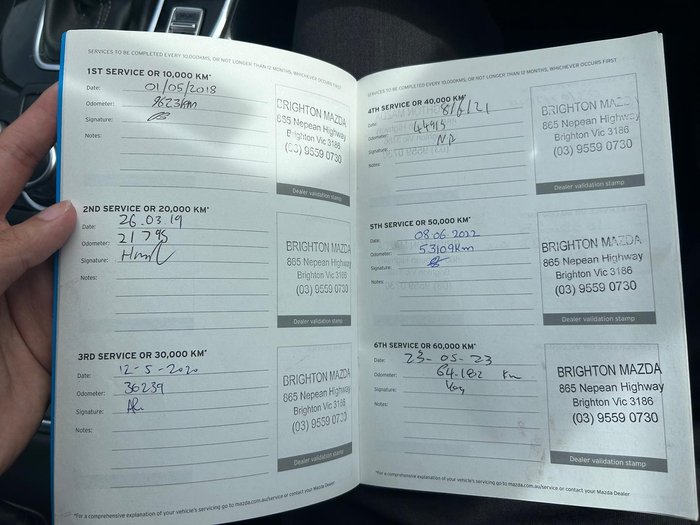 SERVICES TO BE COMPLETED EVERY 10,000KMS, OR NOT LONGER THAN 12 MONTHS, WHICHEVER OCCURS FIRST
1ST SERVICE OR 10,000 KM*
Date: 01/05/2018
Odometer: 9623km
Signature:
Notes:
BRIGHTON MAZDA
865 Nepean Highway
Brighton Vic 3186
(03) 9559 0730
Dealer validation stamp
2ND SERVICE OR 20,000 KM*
Date: 26.03.19
Odometer: 21795
Signature:
Notes:
BRIGHTON MAZDA
865 Nepean Highway
Brighton Vic 3186
(03) 9559 0730
Dealer validation stamp
3RD SERVICE OR 30,000 KM*
Date: 12-5-2020
Odometer: 36239
Signature:
Notes:
BRIGHTON MAZDA
865 Nepean Highway
Brighton Vic 3186
(03) 9559 0730
Dealer validation stamp
*For a comprehensive explanation of your vehicle's servicing go to mazda.com.au/service or contact your Mazda Dealer
SERVICES TO BE COMPLETED EVERY 10,000KMS, OR NOT LONGER THAN 12 MONTHS, WHICHEVER OCCURS FIRST
4TH SERVICE OR 40,000 KM*
Date: 8/6/21
Odometer:
Signature:
Notes:
BRIGHTON MAZDA
865 Nepean Highway
Brighton Vic 3186
(03) 9559 0730
Dealer validation stamp
5TH SERVICE OR 50,000 KM*
Date: 08.06.2022
Odometer: 53109km
Signature:
Notes:
BRIGHTON MAZDA
865 Nepean Highway
Brighton Vic 3186
(03) 9559 0730
Dealer validation stamp
6TH SERVICE OR 60,000 KM*
Date: 23-05-23
Odometer: 64.182 km
Signature:
Notes:
BRIGHTON MAZDA
865 Nepean Highway
Brighton Vic 3186
(03) 9559 0730
Dealer validation stamp
*For a comprehensive explanation of your vehicle's servicing go to mazda.com.au/service or contact your Mazda Dealer